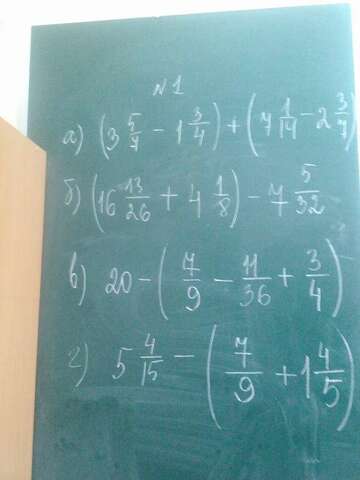 №1
а) (3 5/7 − 1 3/4) + (7 1/14 − 2 3/7)
б) (16 13/26 + 4 1/8) − 7 5/32
в) 20 − (7/9 − 11/36 + 3/4)
г) 5 4/15 − (7/9 + 1 4/5)